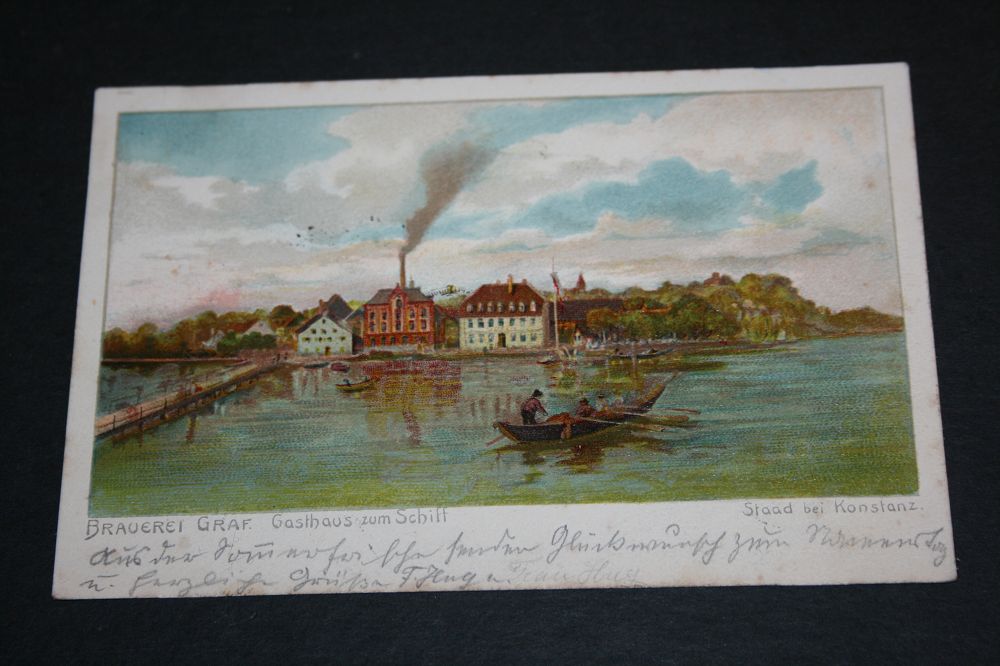 BRAUEREI GRAF. Gasthaus zum Schiff
Staad bei Konstanz.
Aus der Sommerfrische senden Glückwunsch zum Namenstag
u. herzliche Grüße F. Hug u. Frau Hug